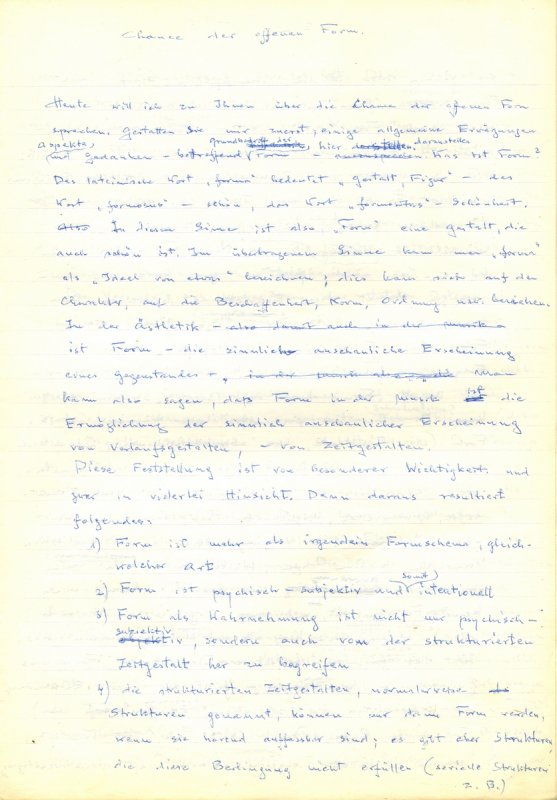 Chance der offenen Form.
Heute will ich zu Ihnen über die Chance der offenen Form
sprechen. Gestatten Sie mir zuerst, einige allgemeine Erwägungen
Aspekte, grundbegriff der darzustellen.
und Gedanken – betreffend Form – hier Was ist Form?
Das lateinische Wort „forma“ bedeutet „Gestalt, Figur“ – das
Wort „formosus“ – schön, das Wort „formositas“ – Schönheit.
Also In diesem Sinne ist also „Form“ eine Gestalt, die
auch schön ist. Im übertragenem Sinne kann man „forma“
als „Ideal von etwas“ bezeichnen; dies kann sich auf den
Charakter, auf die Beschaffenheit, Norm, Ordnung usw. beziehen.
In der Ästhetik – also damit auch in der Musik –
ist Form – die sinnlich anschauliche Erscheinung
eines Gegenstandes –, in der Musik Man
kann also sagen, daß Form in der Musik ist die
Ermöglichung der sinnlich anschaulicher Erscheinung
von Verlaufsgestalten, – von Zeitgestalten.
Diese Feststellung ist von besonderer Wichtigkeit und
zwar in vielerlei Hinsicht. Denn daraus resultiert
folgendes:
1) Form ist mehr als irgendein Formschema, gleich-
welcher Art
2) Form ist psychisch – subjektiv und (somit) intentionell
3) Form als Wahrnehmung ist nicht nur psychisch –
subjektiv
objektiv, sondern auch von der strukturierten
Zeitgestalt her zu begreifen
4) die strukturierten Zeitgestalten, normalerweise als
Strukturen genannt, können nur dann Form werden,
wenn sie hörend auffassbar sind; es gibt aber Strukturen,
die diese Bedingung nicht erfüllen (serielle Strukturen
z. B.)